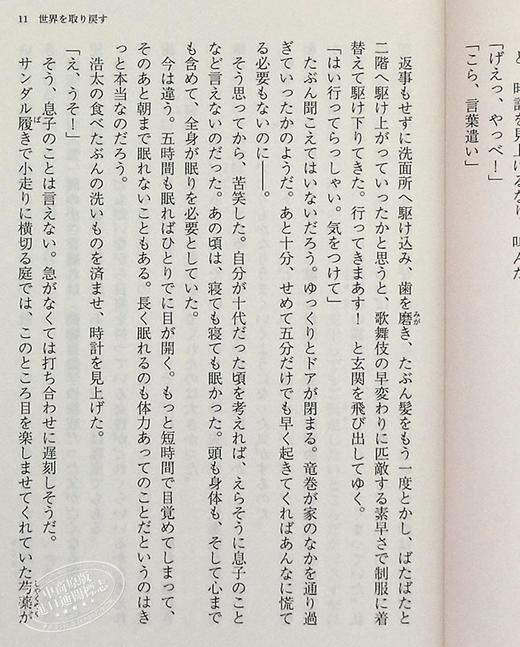 11 世界を取り戻す
と、時計を見上げるなり、叫んだ
「げえっ、やっべ！」
「こら、言葉遣い」
返事もせずに洗面所へ駆け込み、歯を磨き、たぶん髪をもう一度とかし、ばたばたと
みが
二階へ駆け上がっていったかと思うと、歌舞伎の早変わりに匹敵する素早さで制服に着
替えて駆け下りてきた。行ってきまあす！　と玄関を飛び出してゆく。
「はい行ってらっしゃい。気をつけて」
たぶん聞こえてはいないだろう。ゆっくりとドアが閉まる。竜巻が家のなかを通り過
ぎていったかのようだ。あと十分、せめて五分だけでも早く起きてくれればあんなに慌て
る必要もないのに――。
そう思ってから、苦笑した。自分が十代だった頃を考えれば、えらそうに息子のこと
など言えないのだった。あの頃は、寝ても寝ても眠かった。頭も身体も、そして心まで
も含めて、全身が眠りを必要としていた。
今は違う。五時間も眠ればひとりでに目が開く。もっと短時間で目覚めてしまって、
そのあと朝まで眠れないこともある。長く眠れるのも体力あってのことだというのはき
っと本当なのだろう。
浩太の食べたぶんの洗いものを済ませ、時計を見上げた。
「え、うそ！」
そう、息子のことは言えない。急がなくては打ち合わせに遅刻しそうだ。
サンダル履きで小走りに横切る庭では、このところ目を楽しませてくれていた芍薬が
ば
しゃくやく
中商原版